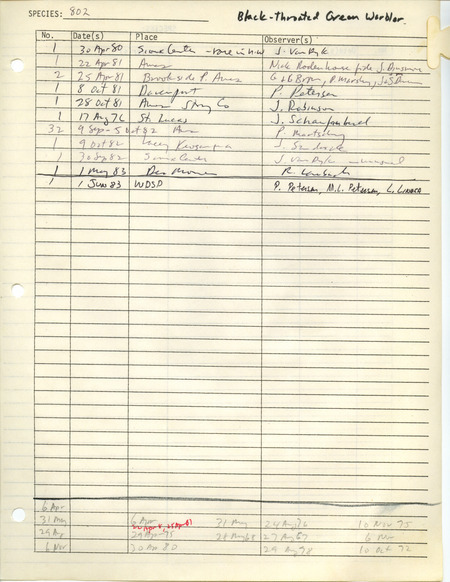 SPECIES: 802 Black-throated Green Warbler
No. Date(s) Place Observer(s)
1 30 Apr 80 Sioux Center J. Van Dyk
1 22 Apr 81 Ames Nick Rodenhouse fide J. Dinsmore
2 25 Apr 81 Brookside P. Ames
1 8 Oct 81 Davenport P. Petersen
1 28 Oct 81 Ames Story Co J. Robinson
1 17 Aug 76 St. Lucas J. Schaufenbuel
32 9 Sep - 5 Oct 82 Ames P. Martsching
1 9 Oct 82 Lacey Keosauqua J. Sandrock
1 30 Sep 82 Sioux Center J. Van Dyk unusual
1 1 May 83 Des Moines
1 1 June 83 WDSD P. Petersen, M.L. Petersen, L. Linaka
6 Apr
31 May 6 Apr 31 May 24 Aug 10 Nov 75
29 Aug 29 Apr 75 28 May 68 27 Aug 67 6 Nov
6 Nov 30 Apr 80 29 Aug 78 10 Oct 72